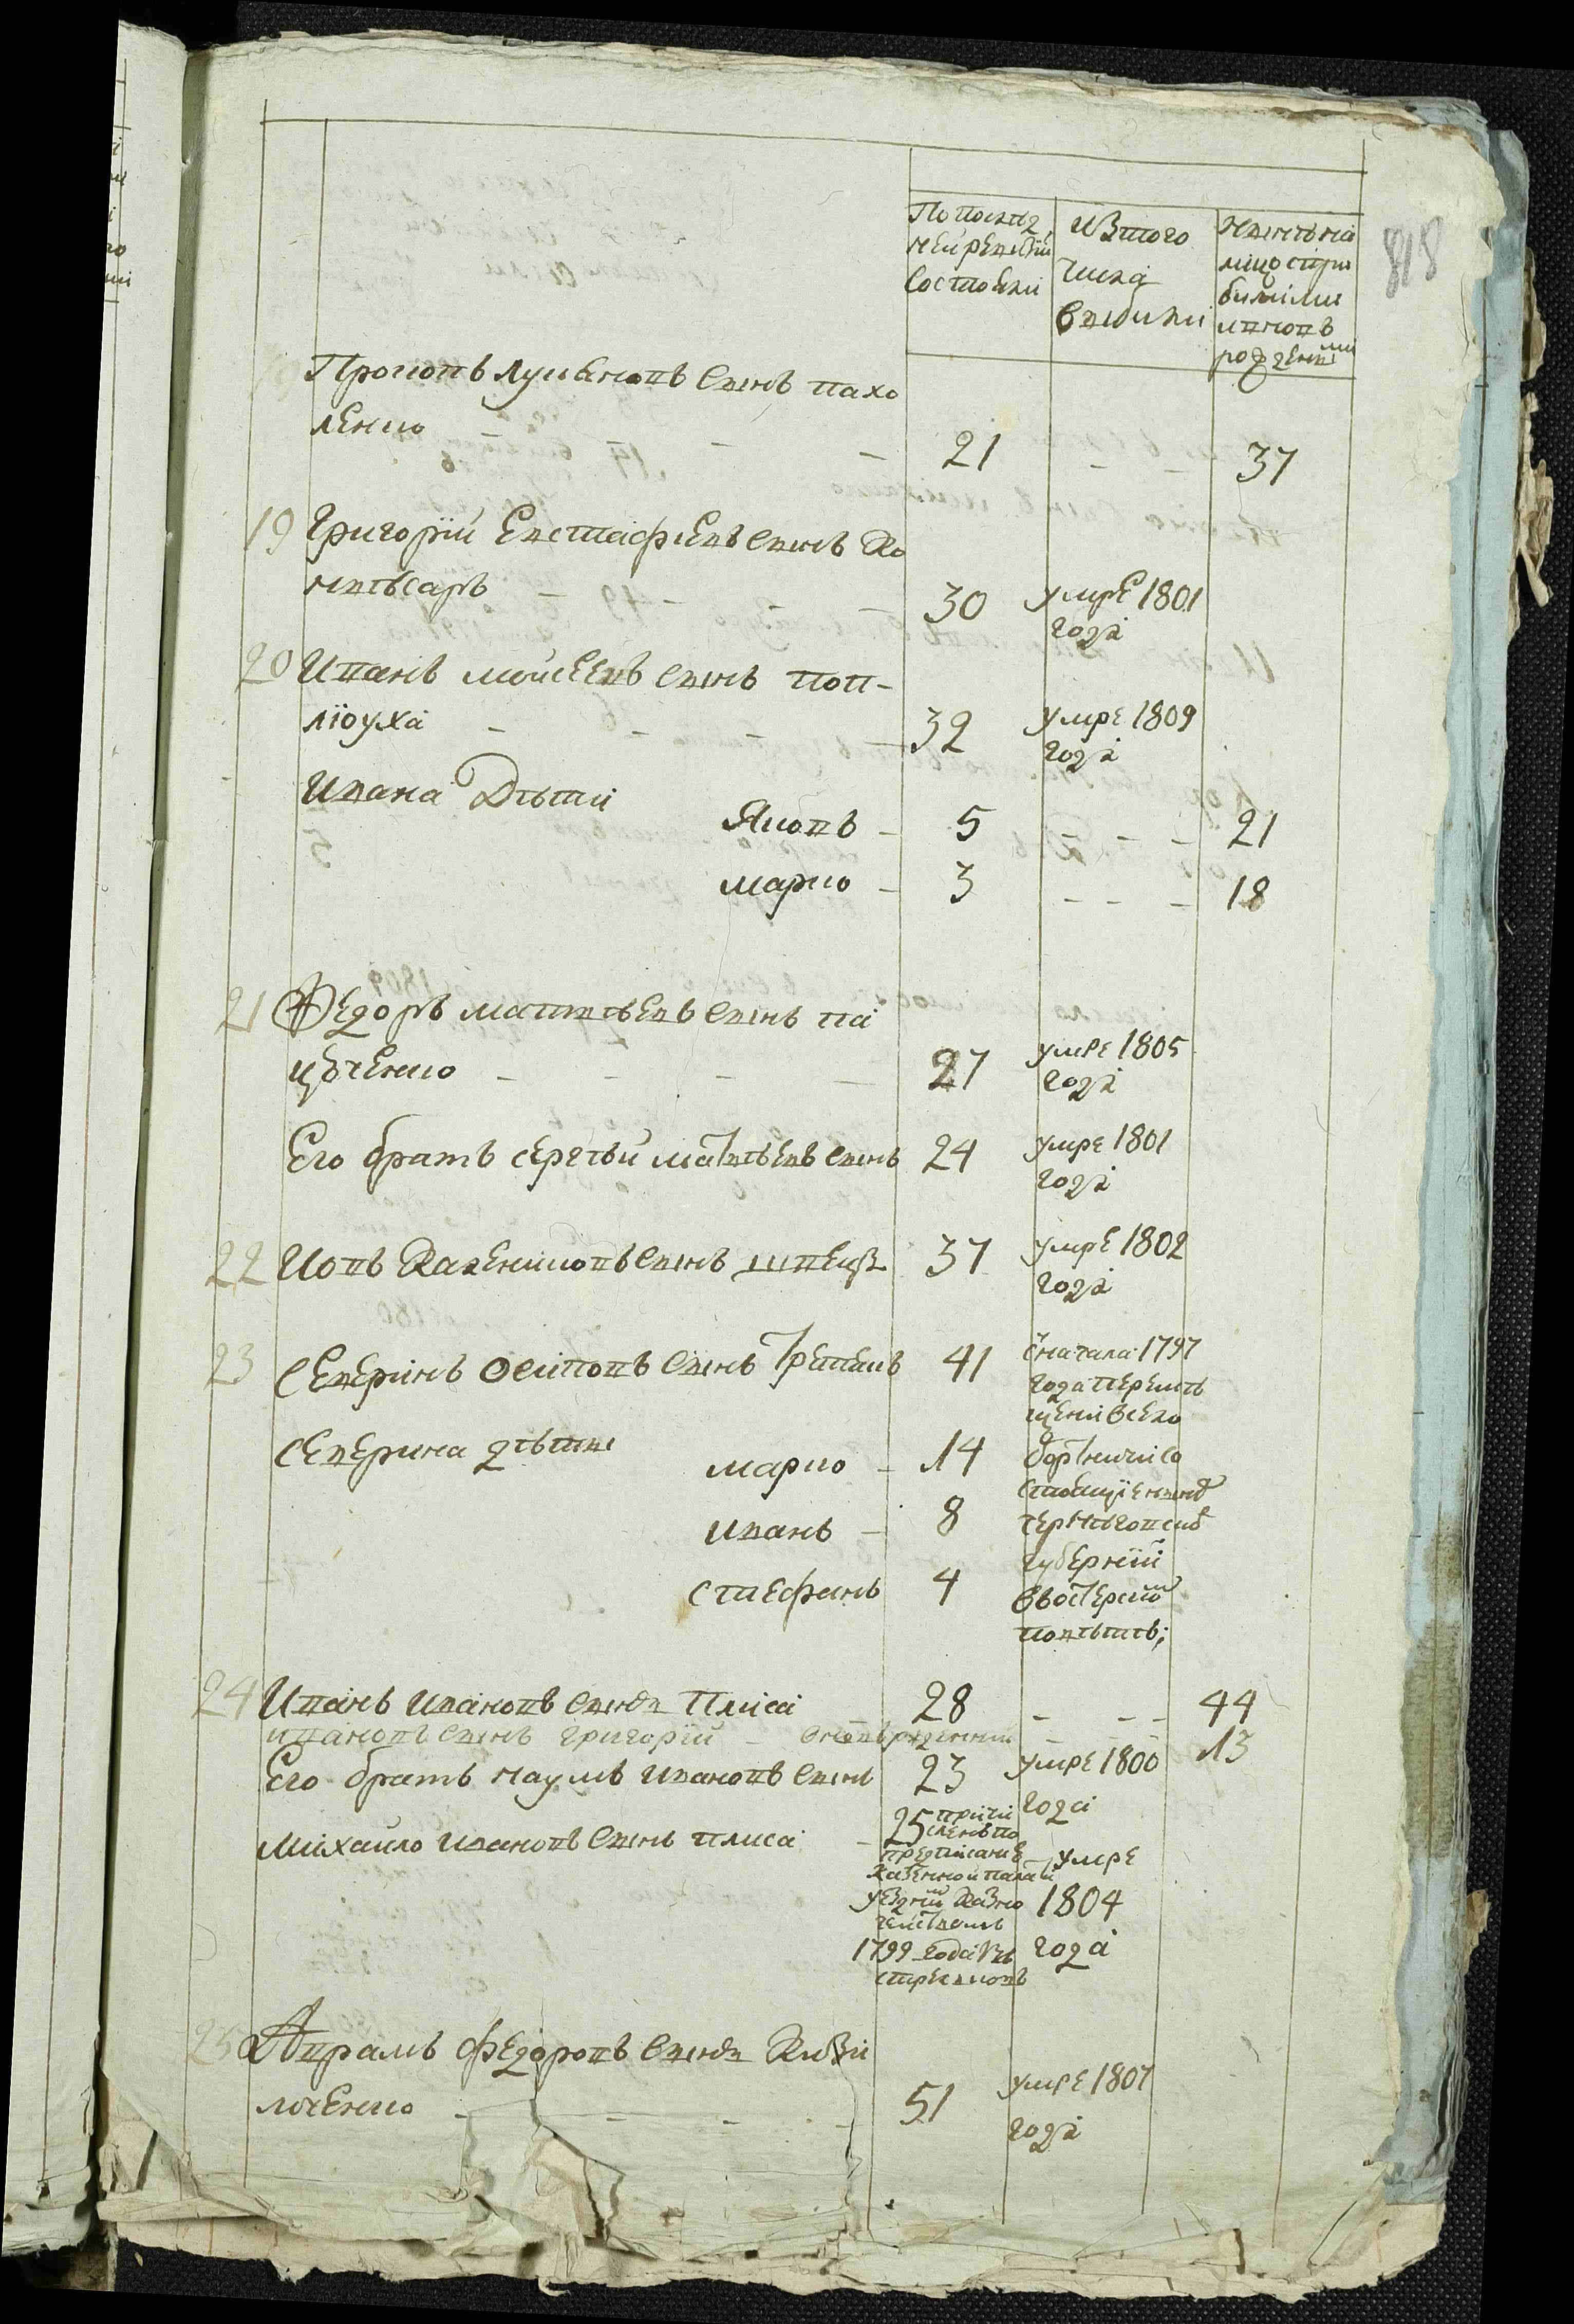 818
По послѣд
ней ревизіи
состояли
изъ того
числа
выбыли
нынѣ на
лицо с при
былыми
и вновь
рожденными
Прокопъ Лукьяновъ сынъ Пахо
ленко - - - 21 - 37
19 Григорій Евстафіевъ сынъ Ко
мисаръ - - - 30 умре 1801
года
20 Иванъ Мойсеевъ сынъ Пов-
люуха - - - - 32 умре 1809
года
Ивана Дѣти
Яковъ - 5 - - - 21
Марко - 3 - - - 18
21 Федоръ Матвѣевъ сынъ Па
ценко - - - - 27 умре 1805
года
Его братъ Сергѣй Матвѣевъ сынъ 24 умре 1801
года
22 Иовъ сынъ Швецъ 37 умре 1802
года
23 Северинъ Осиповъ сынъ 41 с начала 1797
года перемѣ
щени в село
Северина дѣти
Марко - 14
Иванъ - 8
Стефанъ 4
состоящіе
губерніи
повѣтѣ;
24 Иванъ Ивановъ сынъ Плиса 28 - - - 44
Ивановъ сынъ Григорій - вновь рожденный - - - 13
Его братъ Наумъ Ивановъ сынъ 23 умре 1800
года
Михайло Ивановъ сынъ Плиса - 25 причи
сленъ по
предписанію
казенной палаты
уездным казна
чейством
1799 года
умре
1804
года
25 Аврамъ Федоровъ сынъ Кизи
ленко - - - - 51 умре 1807
года